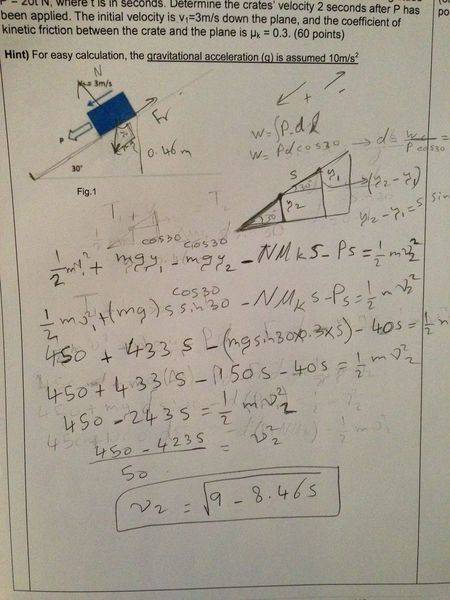 P = 20t N, where t is in seconds. Determine the crates' velocity 2 seconds after P has
been applied. The initial velocity is v₁=3m/s down the plane, and the coefficient
of kinetic friction between the crate and the plane is μₖ = 0.3. (60 points)
Hint) For easy calculation, the gravitational acceleration (g) is assumed 10m/s²
N
= 3m/s
Fr
P
30°
0.46 m
Fig.1
+ -
w = P.d
w = Pd cos30 → d = P cos30 =
S
y₁
y₂
30
30°
(y₂-y₁)
y₂-y₁ = S sin
cos30 cos30
1/2 mv₁² + mgy₁ - mgy₂ - NMₖS - Ps = 1/2 mv₂²
cos30
1/2 mv₁² + (mg) s sin30 - NMₖS - Ps = 1/2 mv₂²
450 + 433 S - (mg sin30 x 0.3 x S) - 40s = 1/2
450 + 433 S - 150s - 40s = 1/2 mv₂²
450 - 243s = 1/2 mv₂²
450 - 423s / 50 = v₂²
v₂ = √9 - 8.46s